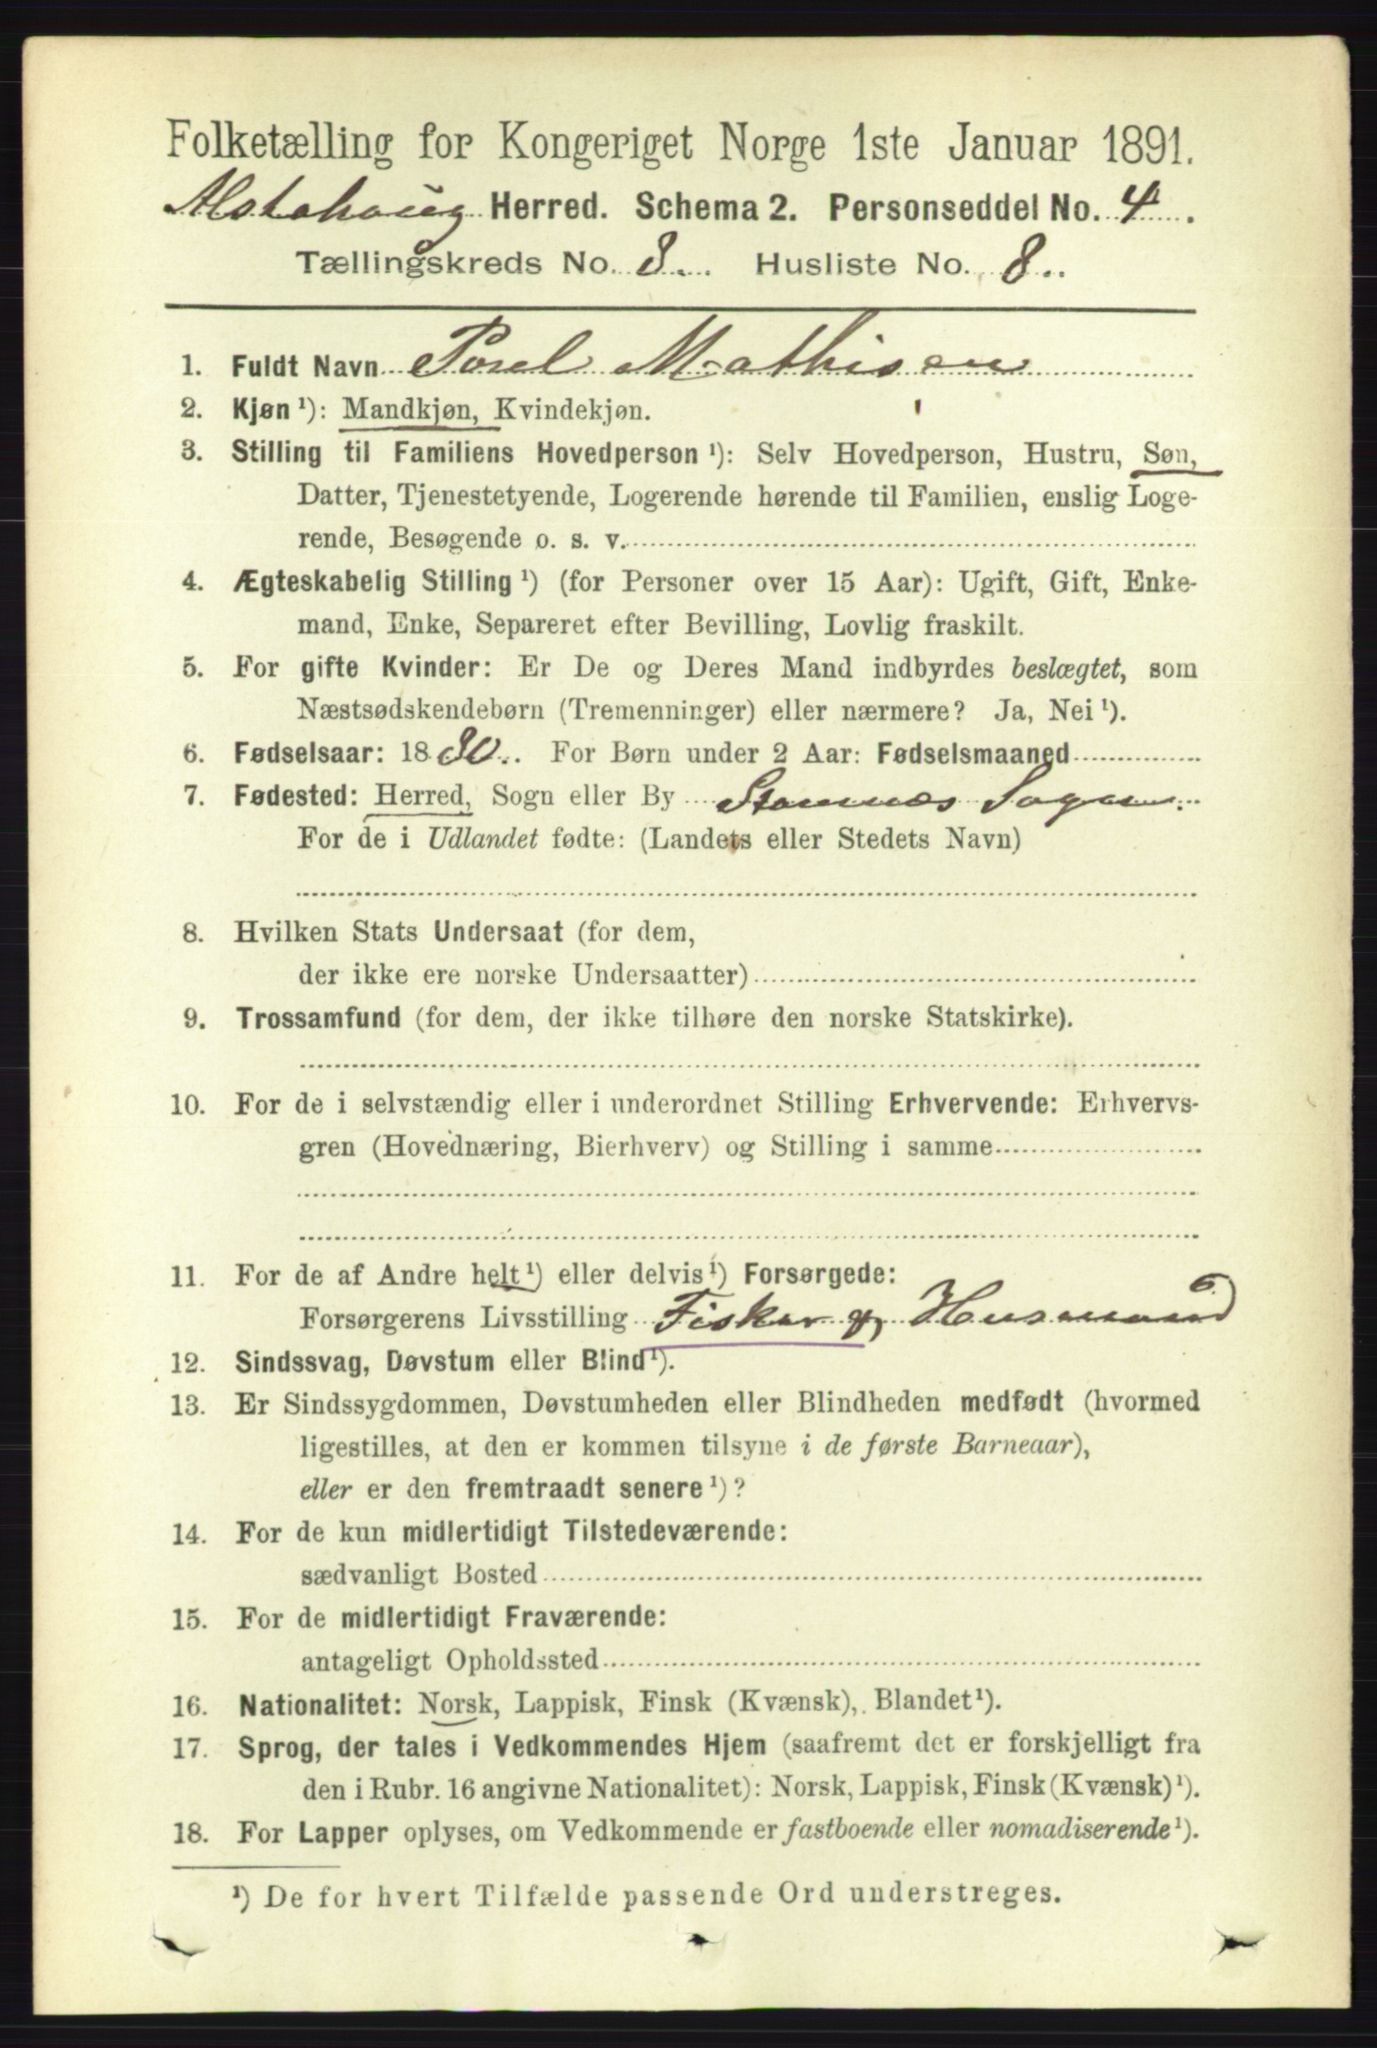 Folketælling for Kongeriget Norge 1ste Januar 1891.
Alstahaug Herred. Schema 2. Personseddel No. 4.
Tællingskreds No. 3. Husliste No. 8.
1. Fuldt Navn Povel Mathisen
2. Kjøn ¹): Mandkjøn, Kvindekjøn.
3. Stilling til Familiens Hovedperson ¹): Selv Hovedperson, Hustru, Søn,
Datter, Tjenestetyende, Logerende hørende til Familien, enslig Loge-
rende, Besøgende o. s. v.
4. Ægteskabelig Stilling ¹) (for Personer over 15 Aar): Ugift, Gift, Enke-
mand, Enke, Separeret efter Bevilling, Lovlig fraskilt.
5. For gifte Kvinder: Er De og Deres Mand indbyrdes beslægtet, som
Næstsødskendebørn (Tremenninger) eller nærmere? Ja, Nei ¹).
6. Fødselsaar: 1880. For Børn under 2 Aar: Fødselsmaaned
7. Fødested: Herred, Sogn eller By Stamnes Sogn.
For de i Udlandet fødte: (Landets eller Stedets Navn)
8. Hvilken Stats Undersaat (for dem,
der ikke ere norske Undersaatter)
9. Trossamfund (for dem, der ikke tilhøre den norske Statskirke).
10. For de i selvstændig eller i underordnet Stilling Erhvervende: Erhvervs-
gren (Hovednæring, Bierhverv) og Stilling i samme
11. For de af Andre helt ¹) eller delvis ¹) Forsørgede:
Forsørgerens Livsstilling Fisker og Husmand
12. Sindssvag, Døvstum eller Blind ¹).
13. Er Sindssygdommen, Døvstumheden eller Blindheden medfødt (hvormed
ligestilles, at den er kommen tilsyne i de første Barneaar),
eller er den fremtraadt senere ¹)?
14. For de kun midlertidigt Tilstedeværende:
sædvanligt Bosted
15. For de midlertidigt Fraværende:
antageligt Opholdssted
16. Nationalitet: Norsk, Lappisk, Finsk (Kvænsk), Blandet ¹).
17. Sprog, der tales i Vedkommendes Hjem (saafremt det er forskjelligt fra
den i Rubr. 16 angivne Nationalitet): Norsk, Lappisk, Finsk (Kvænsk) ¹).
18. For Lapper oplyses, om Vedkommende er fastboende eller nomadiserende ¹).
¹) De for hvert Tilfælde passende Ord understreges.